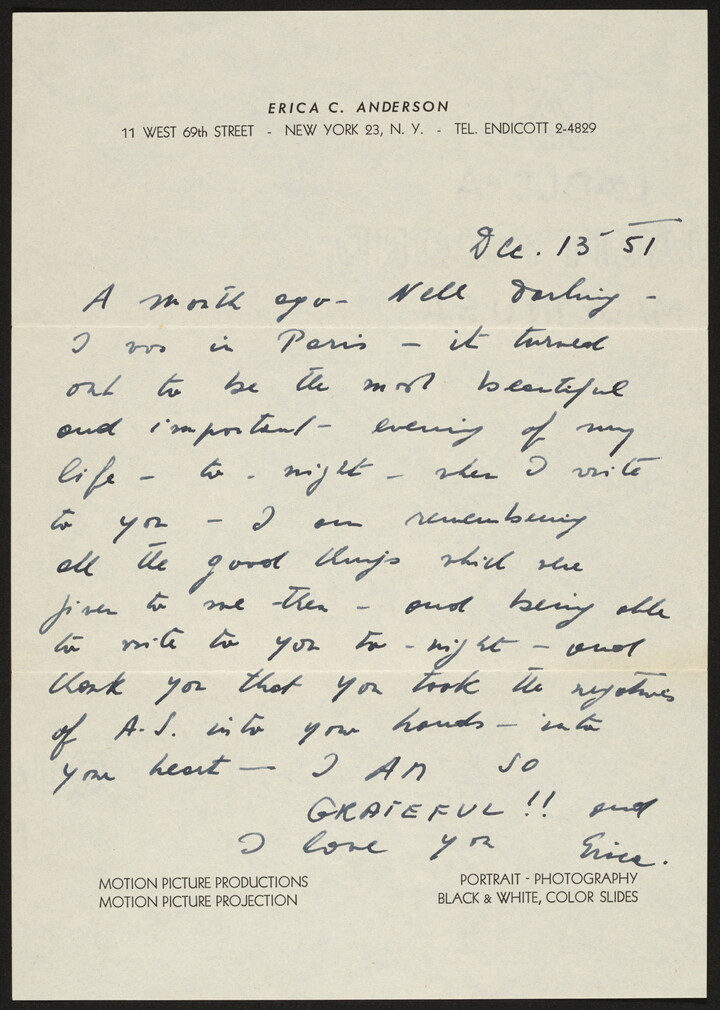 ERICA C. ANDERSON
11 WEST 69th STREET - NEW YORK 23, N. Y. - TEL. ENDICOTT 2-4829
Dec. 13 51
A month ago - Nell Darling -
I was in Paris - it turned
out to be the most beautiful
and important - evening of my
life - to - night - when I write
to you - I am remembering
all the good things which were
given to me then - and being able
to write to you to - night - and
thank you that you took the negatives
of A.S. into your hands - into
your heart - I AM SO
GRATEFUL !! and
I love you Erica.
MOTION PICTURE PRODUCTIONS
MOTION PICTURE PROJECTION
PORTRAIT - PHOTOGRAPHY
BLACK & WHITE, COLOR SLIDES